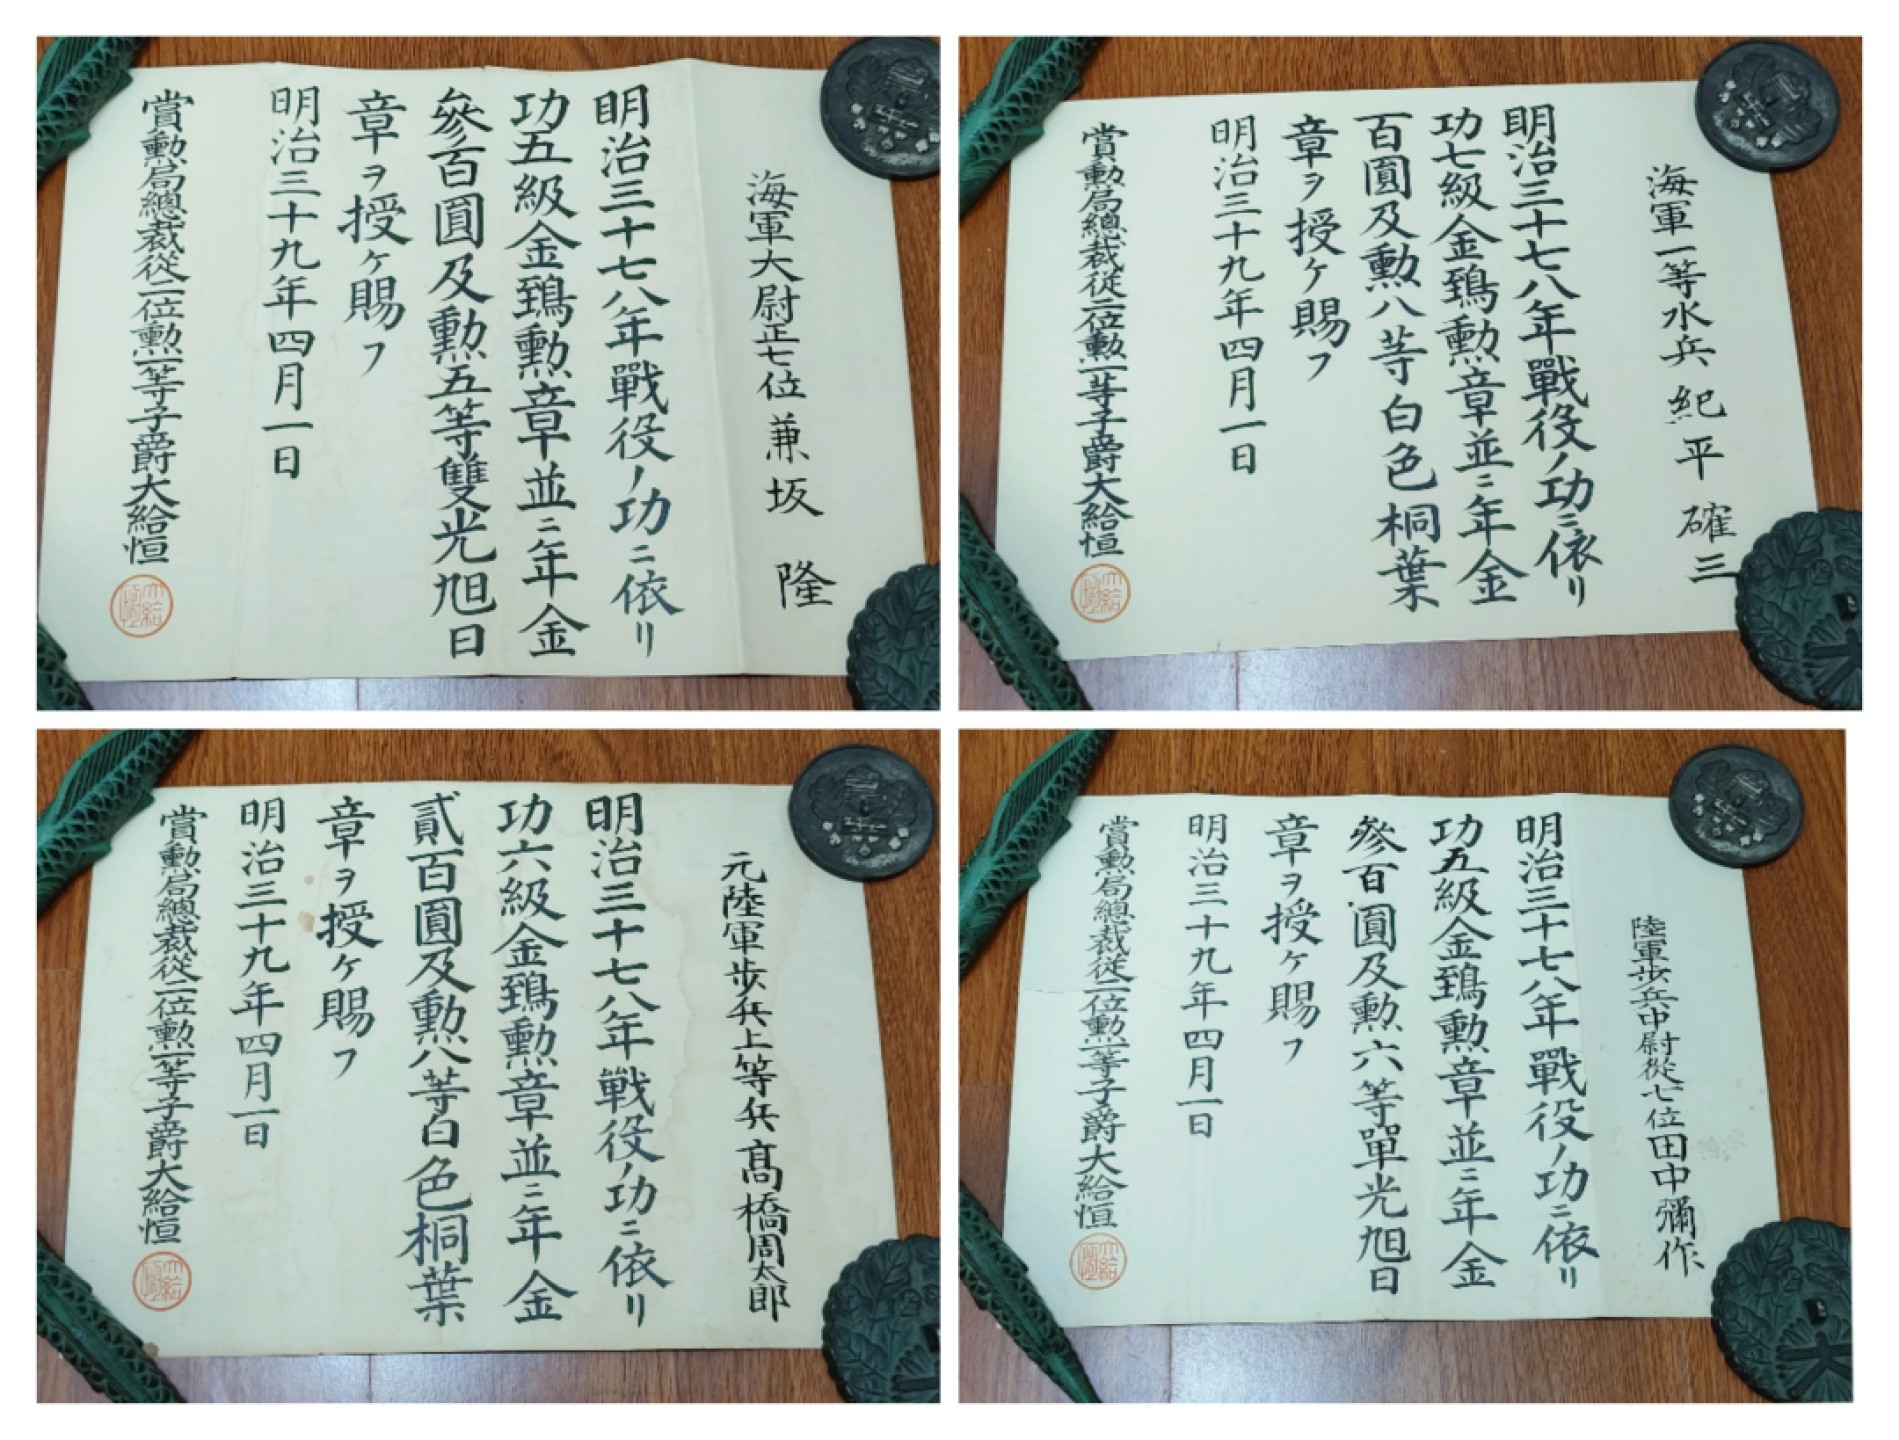 海軍大尉正七位兼坂隆
明治三十七八年戰役ノ功ニ依リ
功五級金鵄勲章並ニ年金
參百圓及勲五等雙光旭日
章ヲ授ケ賜フ
明治三十九年四月一日
賞勲局總裁從二位勲一等子爵大給恒
海軍一等水兵紀平確三
明治三十七八年戰役ノ功ニ依リ
功七級金鵄勲章並ニ年金
百圓及勲八等白色桐葉
章ヲ授ケ賜フ
明治三十九年四月一日
賞勲局總裁從二位勲一等子爵大給恒
元陸軍歩兵上等兵髙橋周太郎
明治三十七八年戰役ノ功ニ依リ
功六級金鵄勲章並ニ年金
貳百圓及勲八等白色桐葉
章ヲ授ケ賜フ
明治三十九年四月一日
賞勲局總裁從二位勲一等子爵大給恒
陸軍歩兵中尉從七位田中彌作
明治三十七八年戰役ノ功ニ依リ
功五級金鵄勲章並ニ年金
參百圓及勲六等單光旭日
章ヲ授ケ賜フ
明治三十九年四月一日
賞勲局總裁從二位勲一等子爵大給恒